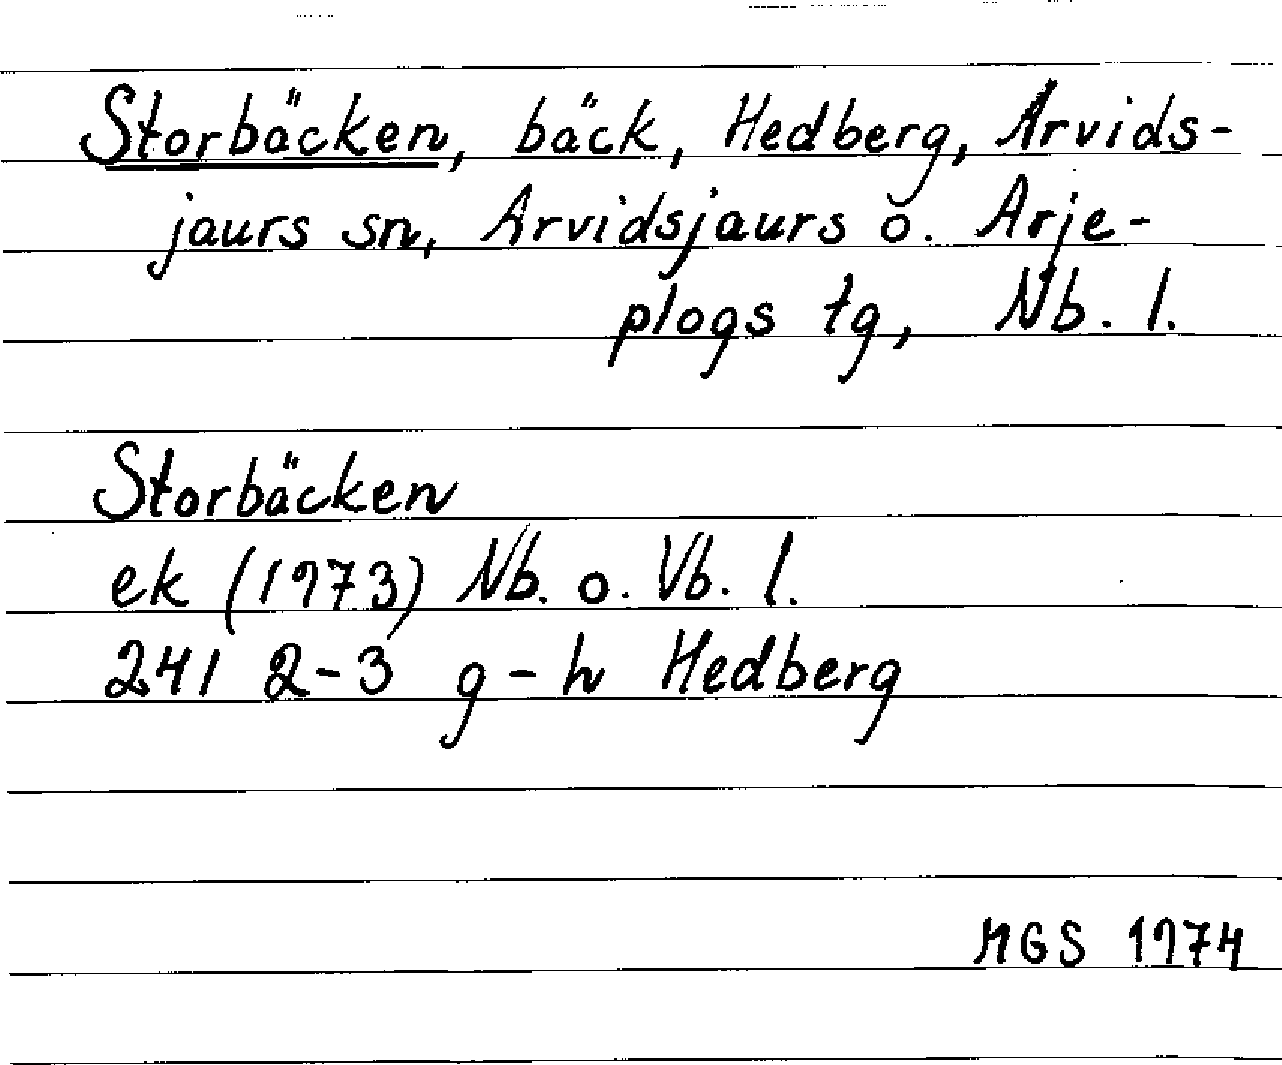 Storbäcken, bäck, Hedberg, Arvids-
jaurs sn, Arvidsjaurs o. Arje-
plogs tg, Nb. l.
Storbäcken
ek (1973) Nb. o. Vb. l.
241 2-3 g-h Hedberg
MGS 1974